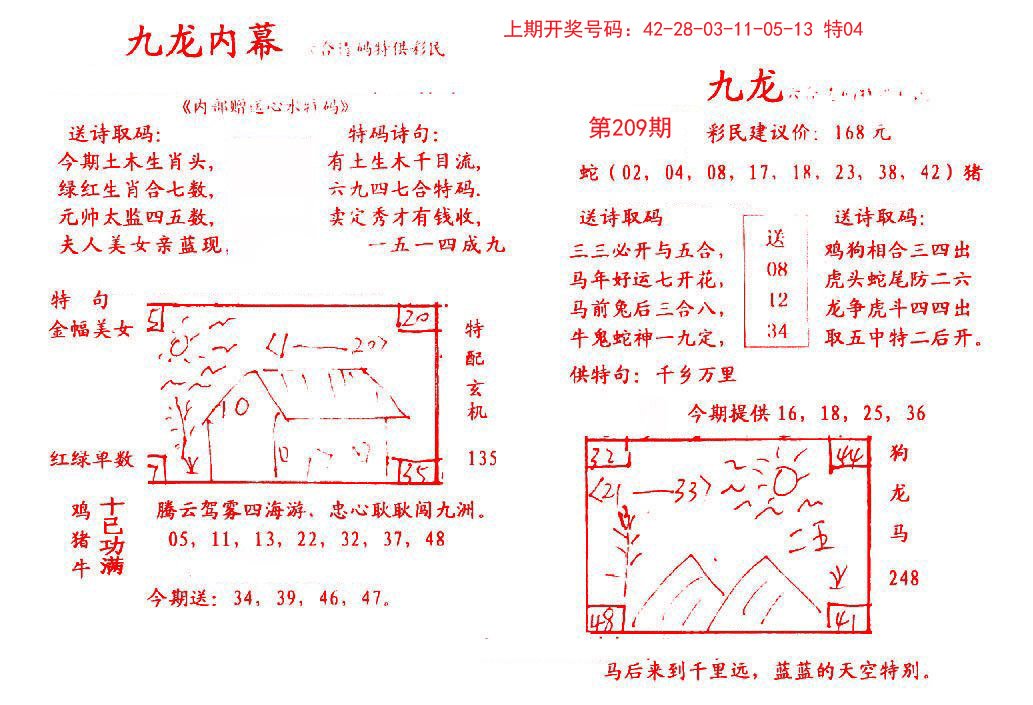 上期开奖号码：42-28-03-11-05-13 特04
九龙内幕
码特供彩民
《内部赠送心水特码》
送诗取码：
今期土木生肖头，
绿红生肖合七数，
元帅太监四五数，
夫人美女亲蓝现，
特码诗句：
有土生木千目流，
六九四七合特码.
卖定秀才有钱收，
一五一四成九
特 句
金幅美女
红绿单数
5
20
〈1——20〉
10
0
35
特
配
玄
机
135
鸡
猪
牛
十
已
功
满
腾云驾雾四海游、忠心耿耿闯九洲。
05，11，13，22，32，37，48
今期送：34，39，46，47。
九龙
第209期
彩民建议价：168元
蛇（02，04，08，17、18，23，38，42）猪
送诗取码
三三必开与五合，
马年好运七开花，
马前兔后三合八，
牛鬼蛇神一九定，
送
08
12
34
送诗取码：
鸡狗相合三四出
虎头蛇尾防二六
龙争虎斗四四出
取五中特二后开。
供特句：千乡万里
今期提供16，18，25，36
32
44
〈21——33〉
二五
48
41
狗
龙
马
248
马后来到千里远，蓝蓝的天空特别。